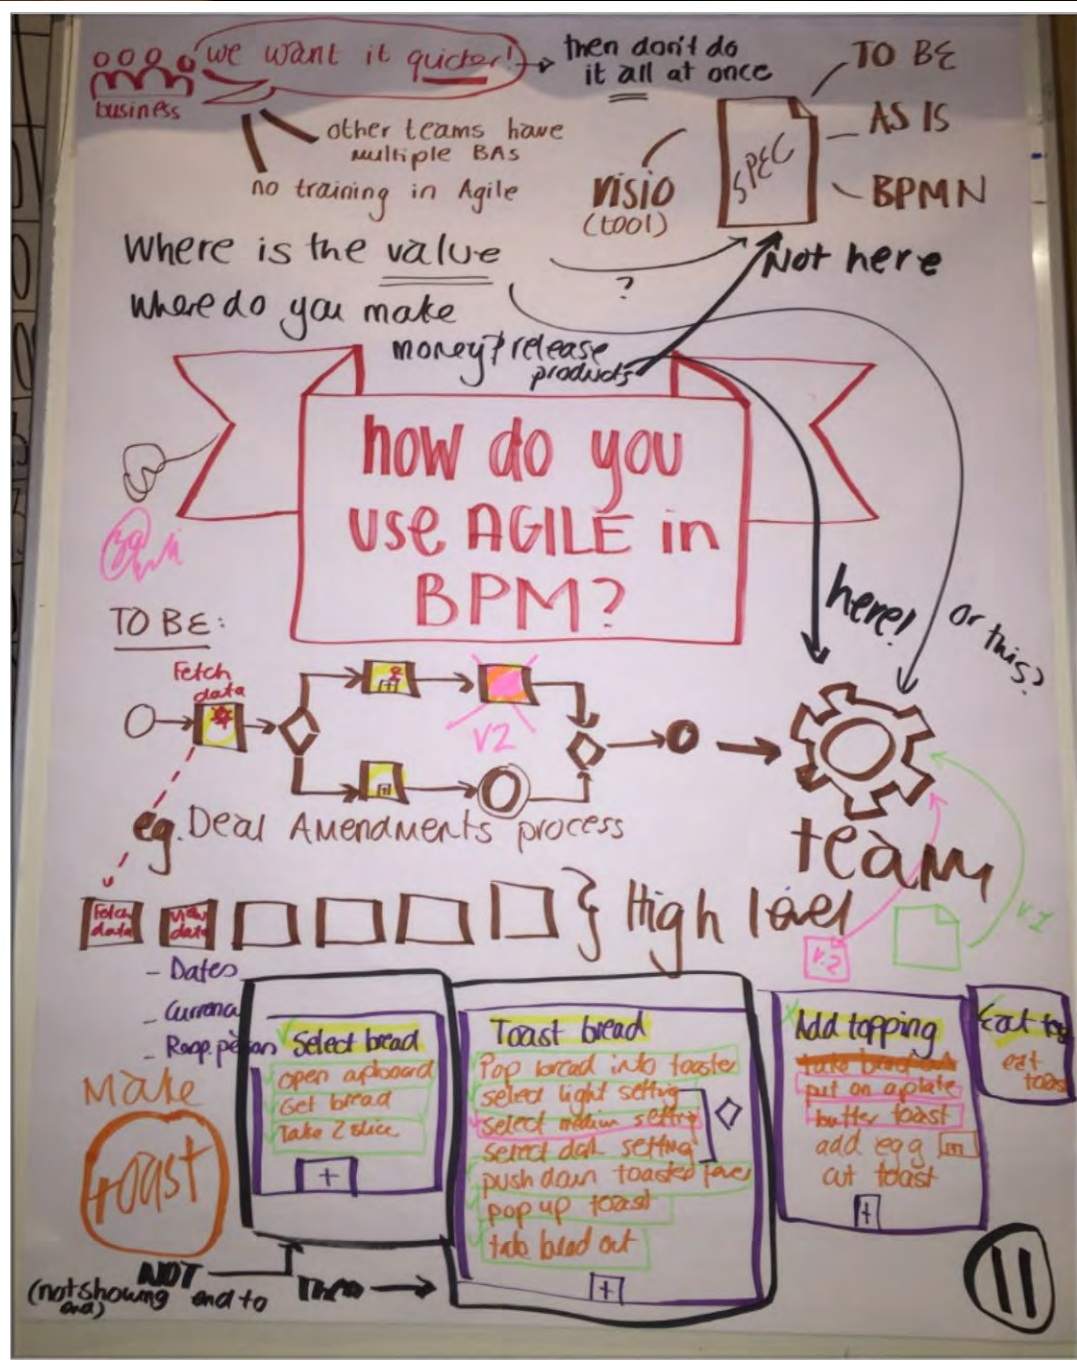 we want it quicker!
business
then don't do
it all at once
other teams have
multiple BAs
no training in Agile
TO BE
AS IS
BPMN
SPEC
VISIO
(tool)
Where is the value
?
Not here
where do you make
money? release
products
how do you
use AGILE in
BPM?
here!
or this?
TO BE:
Fetch
data
V2
eg. Deal Amendments process
team
Fetch
data
View
data
High level
V.2
V.1
- Dates
-
- Resp. person
Make
toast
Select bread
open cupboard
Get bread
Take 2 slice
+
Toast bread
Pop bread into toaster
select light setting
select medium setting
select dark setting
push down toasted lever
pop up toast
take bread out
+
Add topping
take bread out
put on a plate
butter toast
add egg
cut toast
+
Eat
eat
toast
NOT
(not showing end to
end)
Then
11